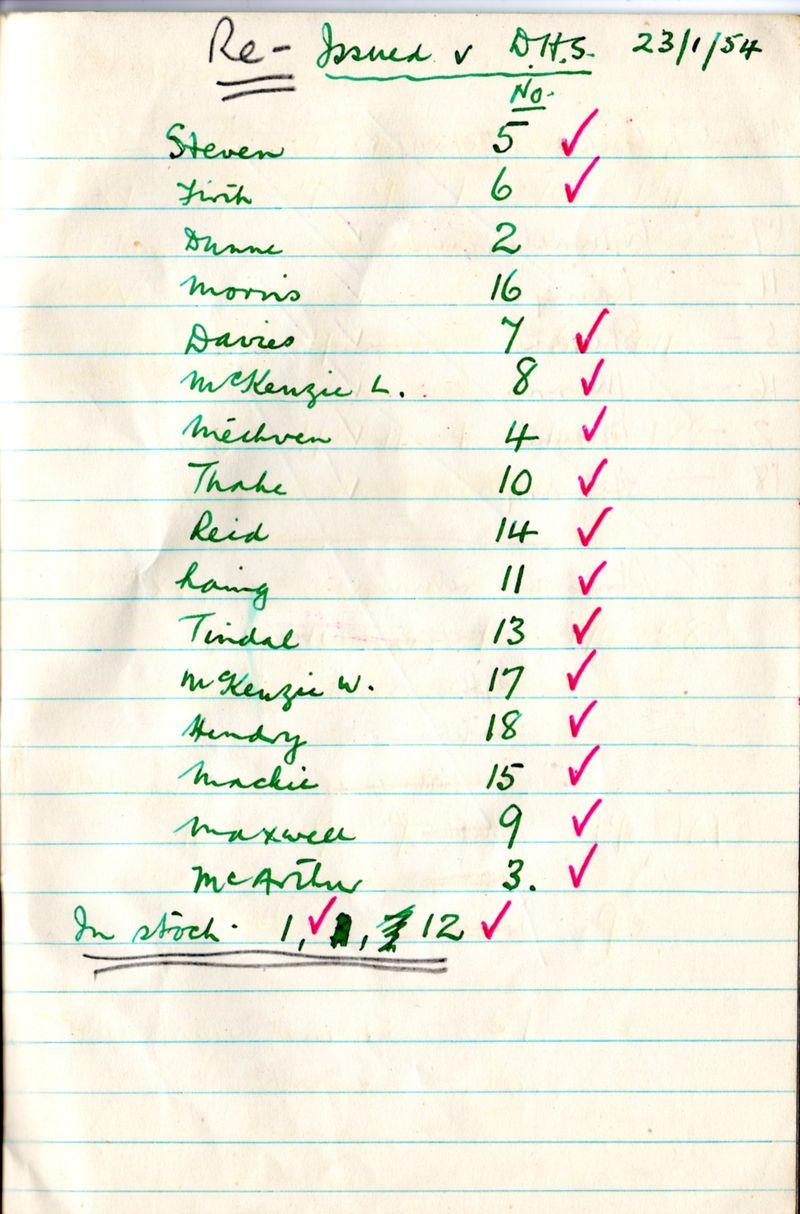 Re- Issued v D.H.S. 23/1/54
No.
Steven 5 ✓
Firth 6 ✓
Dunne 2
Morris 16
Davies 7 ✓
McKenzie L. 8 ✓
Methven 4 ✓
Thake 10 ✓
Reid 14 ✓
Laing 11 ✓
Tindal 13 ✓
McKenzie W. 17 ✓
Hendry 18 ✓
Mackie 15 ✓
Maxwell 9 ✓
McArthur 3. ✓
In stock. 1, ✓ , 12 ✓